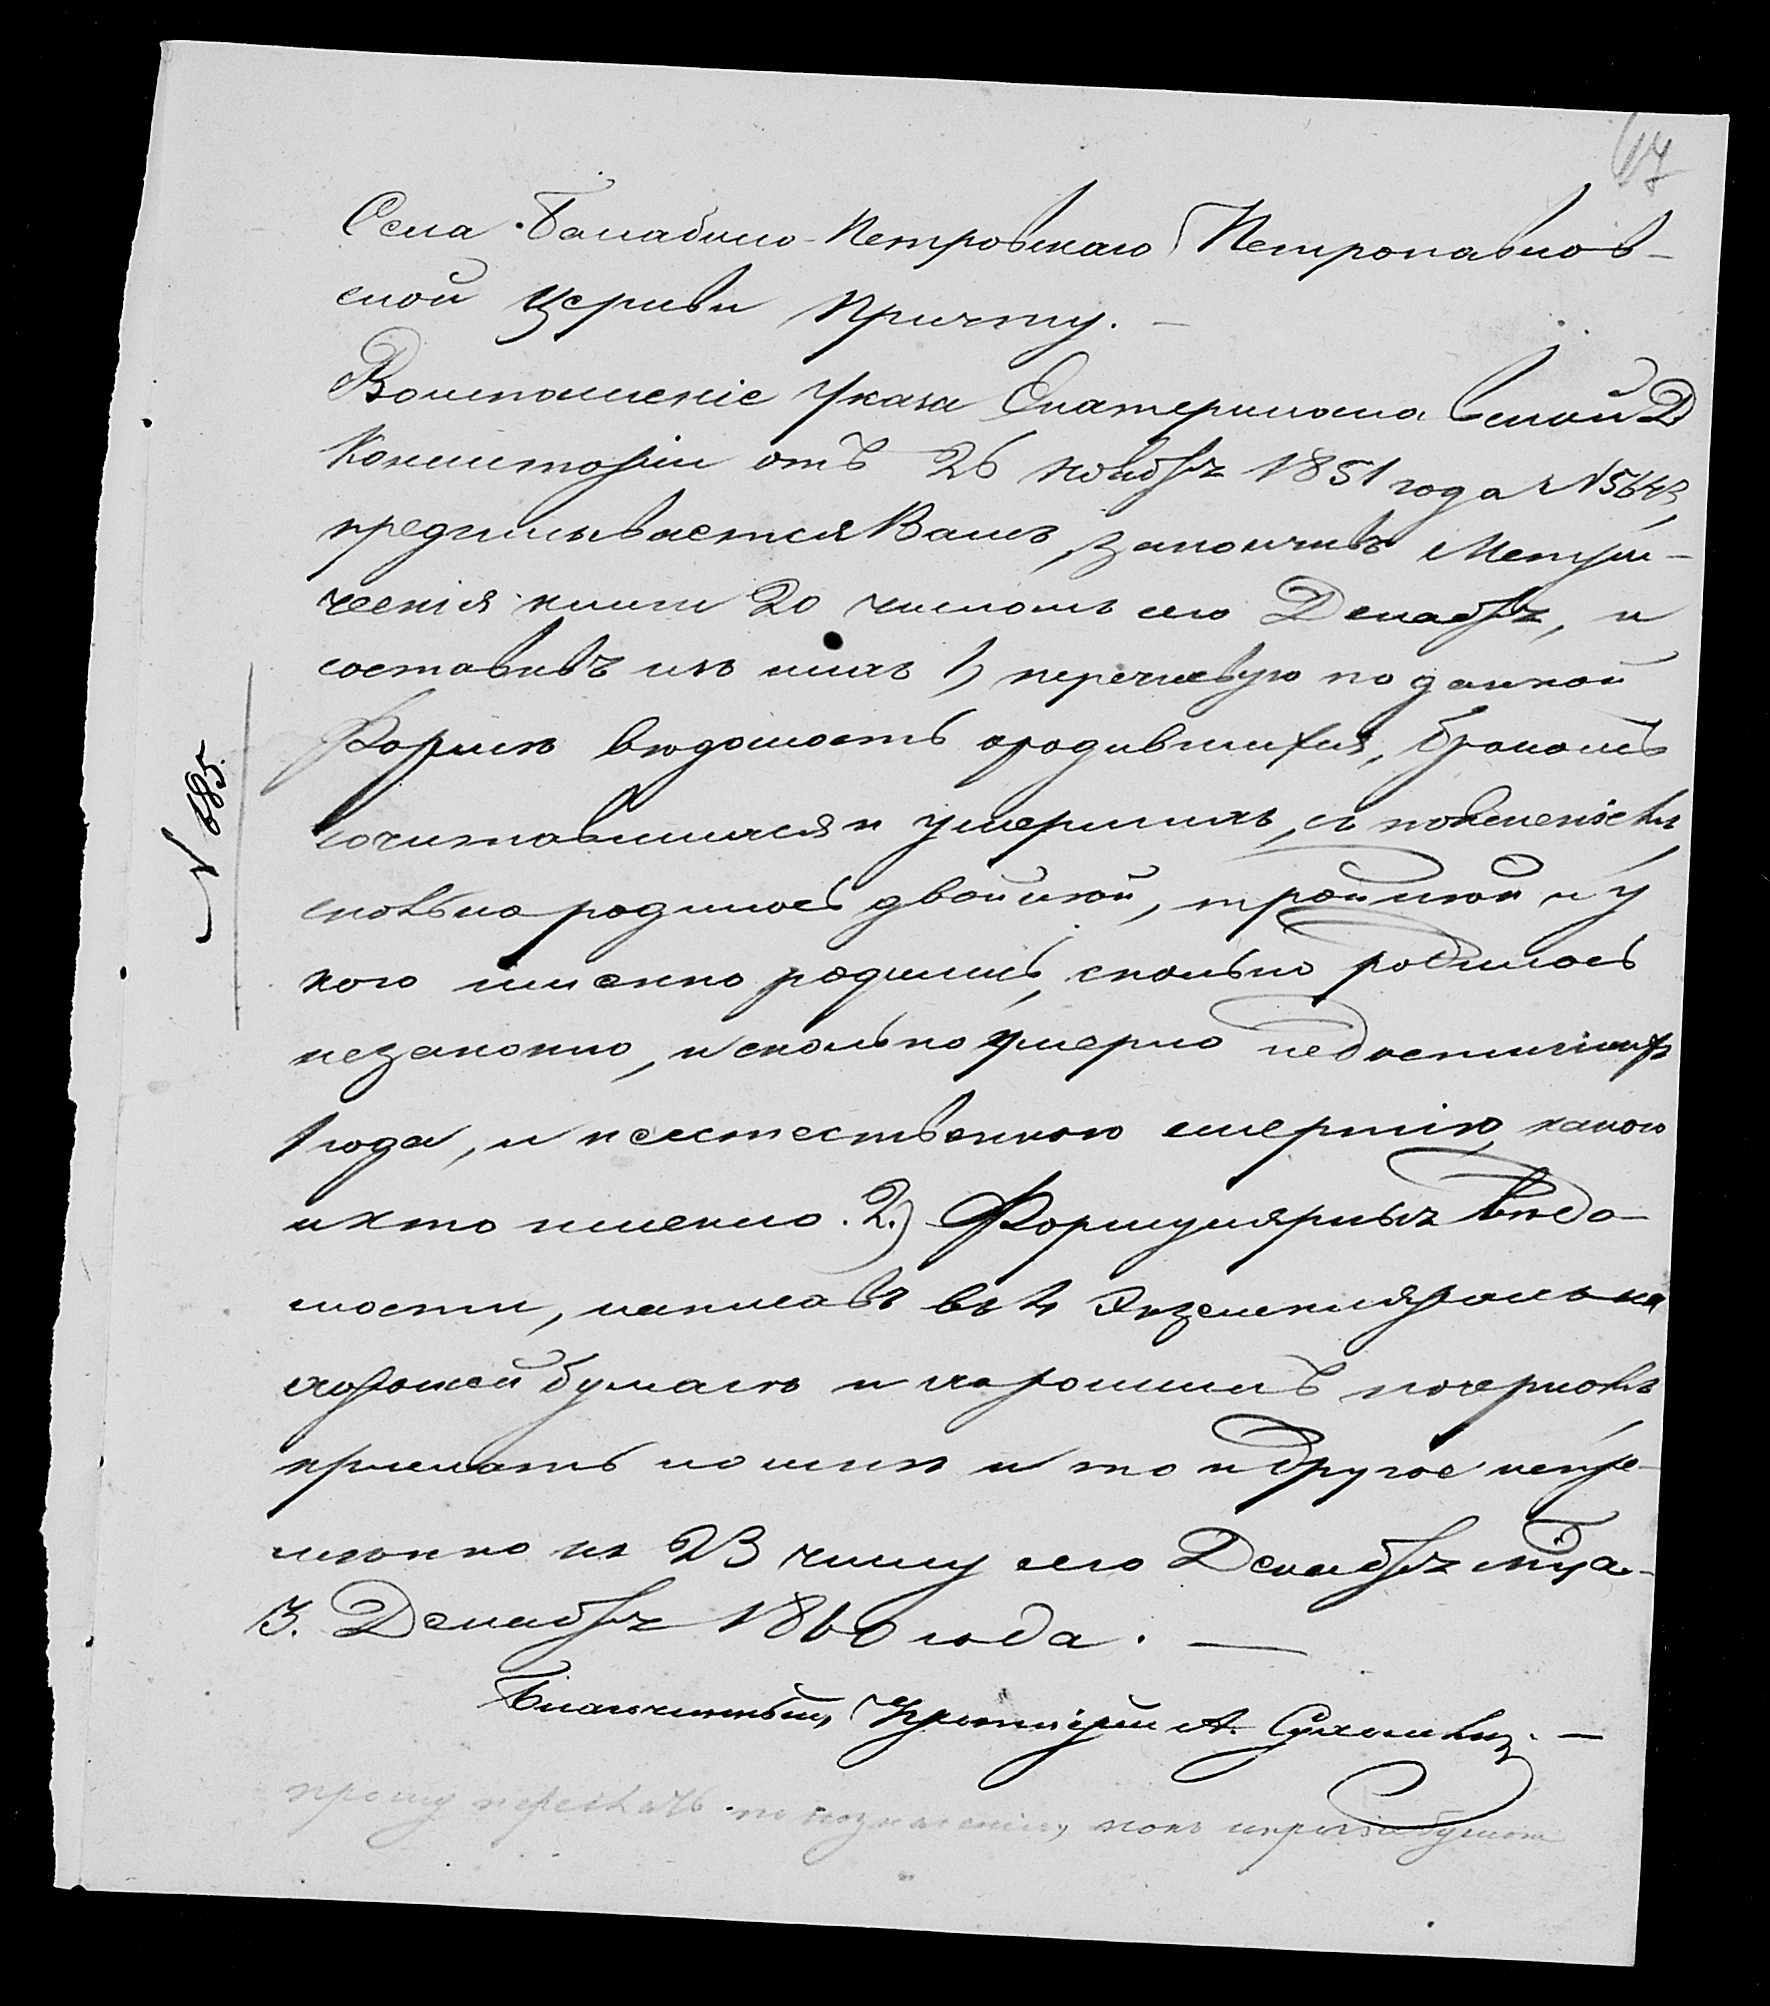 67
Села Балабино-Петровскаго Петропавлов-
ской Церкви Причту. —
Воисполненіе Указа Екатеринославской Д
Консисторіи отъ 26 Ноября 1851 года №5643,
предписывается Вамъ, закончивъ Метри-
ческія книги 20 числомъ сего Декабря, и
составивъ изъ нихъ 1, перечневую по данной
Формѣ вѣдомость ородившихся, бракомъ
сочитавшихся и умершихъ, съ поясненіемъ
сколько родилось двойней, тройней и у
кого именно родились, сколько родилось
незаконно, и сколько умерло недостигшихъ
1 года, и неестественною смертію, какою
и кто именно. 2.) Формулярныя вѣдо-
мости, написавъ въ 4 Экземплярахъ на
хорошей бумагѣ и хорошимъ почеркомъ
прислать ко мнѣ и то и другое непре-
мѣнно къ 23 числу сего Декабря м̃ца. -
3. Декабря 1860 года. —
Благочинный, Протоіерей А. —
прошу переслать по назначенію,
N 685.